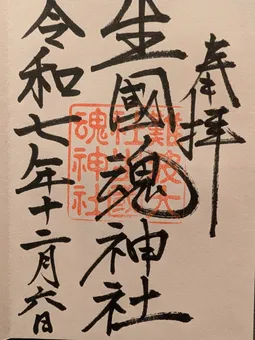 奉拝
生國魂神社
難波大
社
魂神社
令和七年十二月六日